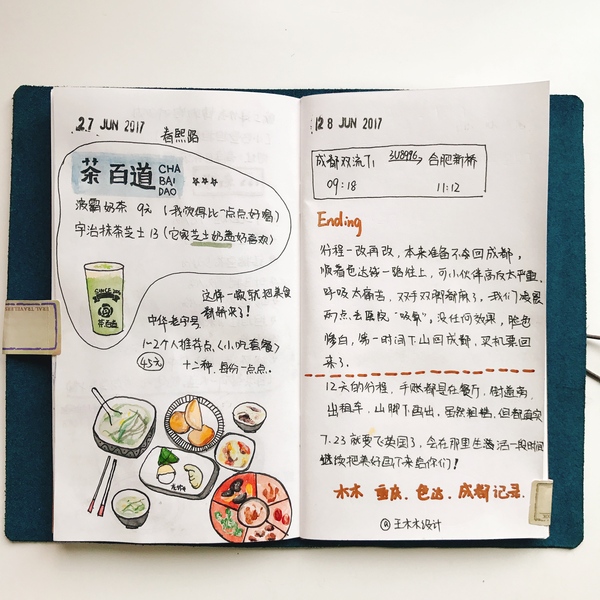 27 JUN 2017
春熙路
茶百道
CHA
BAI
DAO
波霸奶茶 9元 (我觉得比一点点好喝)
宇治抹茶芝士 13 (它家芝士奶盖好喜欢)
SINCE
茶百道
这样一家就把美食
都解决了!
中华老字号
1-2个人推荐点《小吃套餐》
45元
十二种,每份一点点.
28 JUN 2017
成都双流T1 3U8996 合肥新桥
09:18 11:12
Ending
行程一改再改,本来准备不会回成都,
顺着色达继续一路往上,可小伙伴高反太严重.
呼吸太痛苦,双手双脚都麻了.我们凌晨
两点去医院"吸氧",没任何效果,脸色
惨白,第一时间下山回成都,买机票回
来了.
12天的行程,手账都是在餐厅,街道旁,
出租车,山脚下画出,虽然粗糙,但都真实
7.23就要飞英国了,会在那里生活一段时间
继续把美好画下来给你们!
木木 重庆.色达.成都记录.
@王木木设计